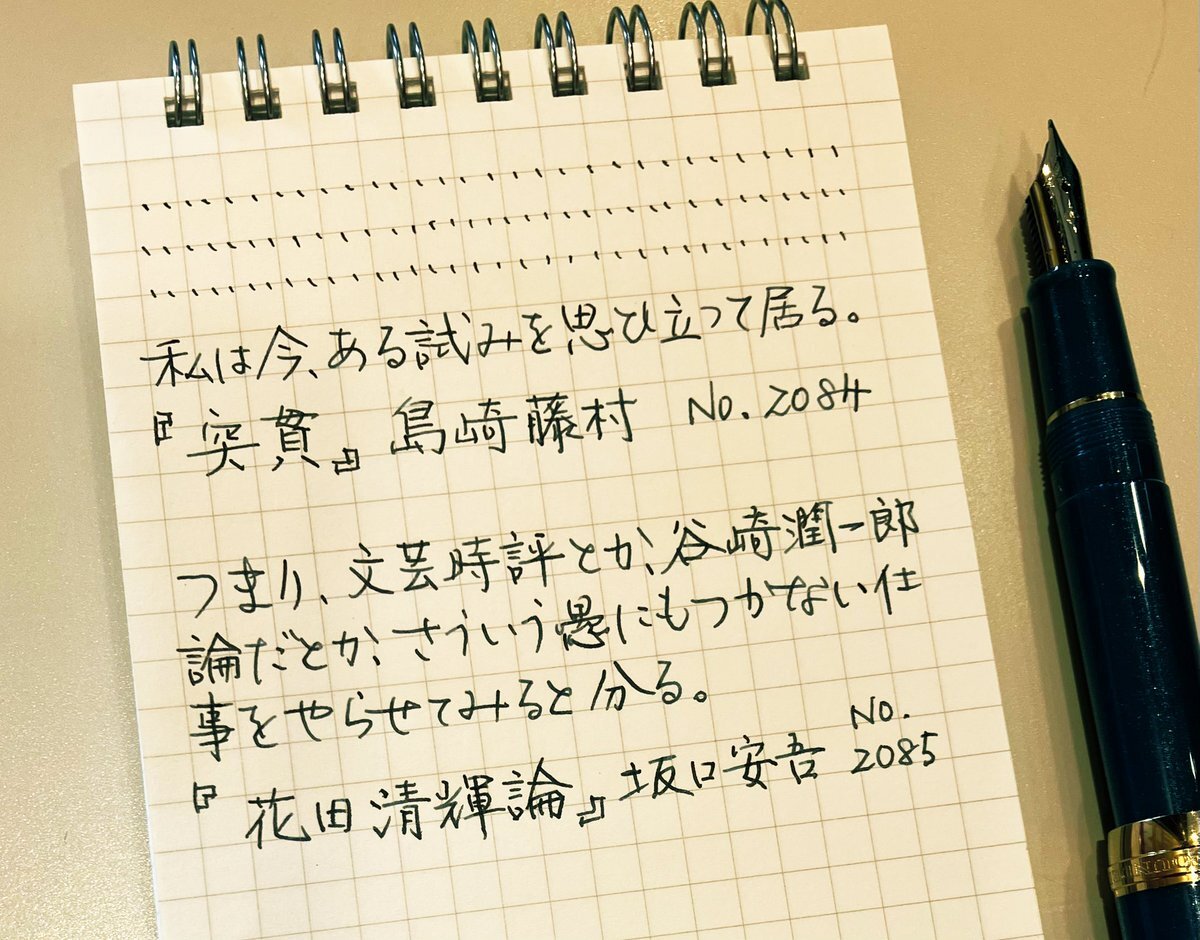 私は今、ある試みを思ひ立って居る。
『突貫』島崎藤村 No.2084
つまり、文芸時評とか、谷崎潤一郎
論だとか、さういう愚にもつかない仕
事をやらせてみると分る。
『花田清輝論』坂口安吾 No.
2085